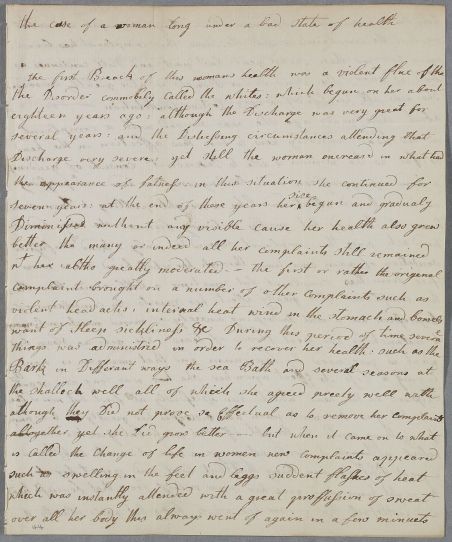 the case of a woman long under a bad state of health
the first Breach of this womans health was a violent flue of the
the Disorder commobily called the whites: which begun on her about
eighteen years ago; although the Discharge was very great for
several years: and the Distressing circumstances attending that
Discharge very severe; yet still the woman encreased in what had
the appearance of fatness. in this situation she continued for
seven years: at the end of these years her size begun and gradualy
Diminished without any visible cause her health also grew
better tho many or indeed all her complaints still remained
wt her altho greatly moderated — the first or rather the original
complaint brought on a number of other complaints such as
violent headachs; internal heat wind in the stomach and bowels
want of sleep sickliness &c During this period of time severa
things was administred in order to recover her health: such as the
Bark in Differant ways the sea Bath and several seasons at
the shalloch well all of which she agreed preety well wath
although they Did not prove so Effectual as to remove her complaints
altogether yet she Did grow better — but when it came on to what
is called the Change of life in women new complaints appeared
such as swelling in the feet and leggs suddent flashes of heat
which was instantly attended with a great proffusion of sweat
over all her body this always went of again in a few minuets
44